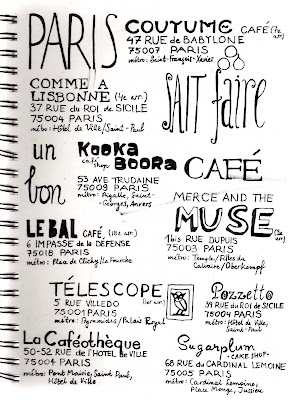 PARIS
COUTUME CAFÉ (7e arr.)
47 RUE DE BABYLONE
75007 PARIS
métro: Saint-François-Xavier
COMME A
LISBONNE (4e arr.)
37 RUE DU ROI DE SICILE
75004 PARIS
métro: Hôtel de Ville/Saint-Paul
SAIT faire
un
bon
KOOKA
BOORA
coffee shop
53 AVE TRUDAINE
75009 PARIS
métro: Pigalle, Saint-
Georges, Anvers
CAFÉ
LE BAL CAFÉ (18e arr.)
6 IMPASSE DE LA DEFENSE
75018 PARIS
métro: Place de Clichy/La Fourche
MERCE AND THE
MUSE (3e arr.)
1bis RUE DUPUIS
75003 PARIS
métro: Temple/Filles du
Calvaire/Oberkampf
TÉLESCOPE
5 RUE VILLEDO (1er arr.)
75001 PARIS
métro: Pyramides/Palais Royal
Pozzetto
39 RUE DU ROI DE SICILE
75004 PARIS
métro: Hôtel de Ville,
Saint-Paul
La Caféothèque
50-52 RUE DE L'HOTEL DE VILLE
75004 PARIS
métro: Pont Marie, Saint Paul,
Hôtel de Ville
Sugarplum
- CAKE SHOP -
68 RUE DU CARDINAL LEMOINE
75005 PARIS
métro: Cardinal Lemoine,
Place Monge, Jussieu